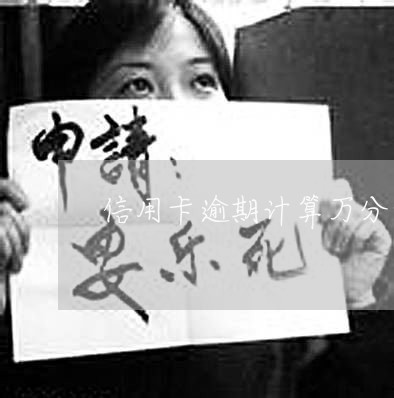 申請：
信用卡逾期计算万分
安乐死